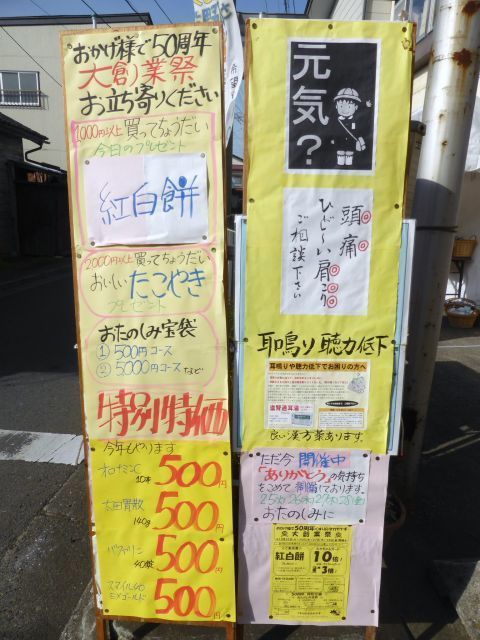 おかげ様で50周年
大創業祭
お立ち寄りください
1000円以上買ってちょうだい
今日のプレゼント
紅白餅
2000円以上買ってちょうだい
おいしいたこやき
プレゼント
おたのしみ宝袋
① 500円コース
② 5000円コース
特別特価
今年もやります
オロナミンC
10本 500円
太田胃散
140g 500円
バファリン
40錠 500円
スマイル40
EXゴールド 500円
元気？
頭痛
ひど〜い肩こり
ご相談下さい
耳鳴り 聴力低下
耳鳴りや聴力低下でお困りの方へ
良い漢方薬あります。
ただ今 開催中
「ありがとう」の気持ち
をこめて
25(水)26(木)27(金)28(土)
おたのしみに
大創業祭
紅白餅
10倍!
3倍!